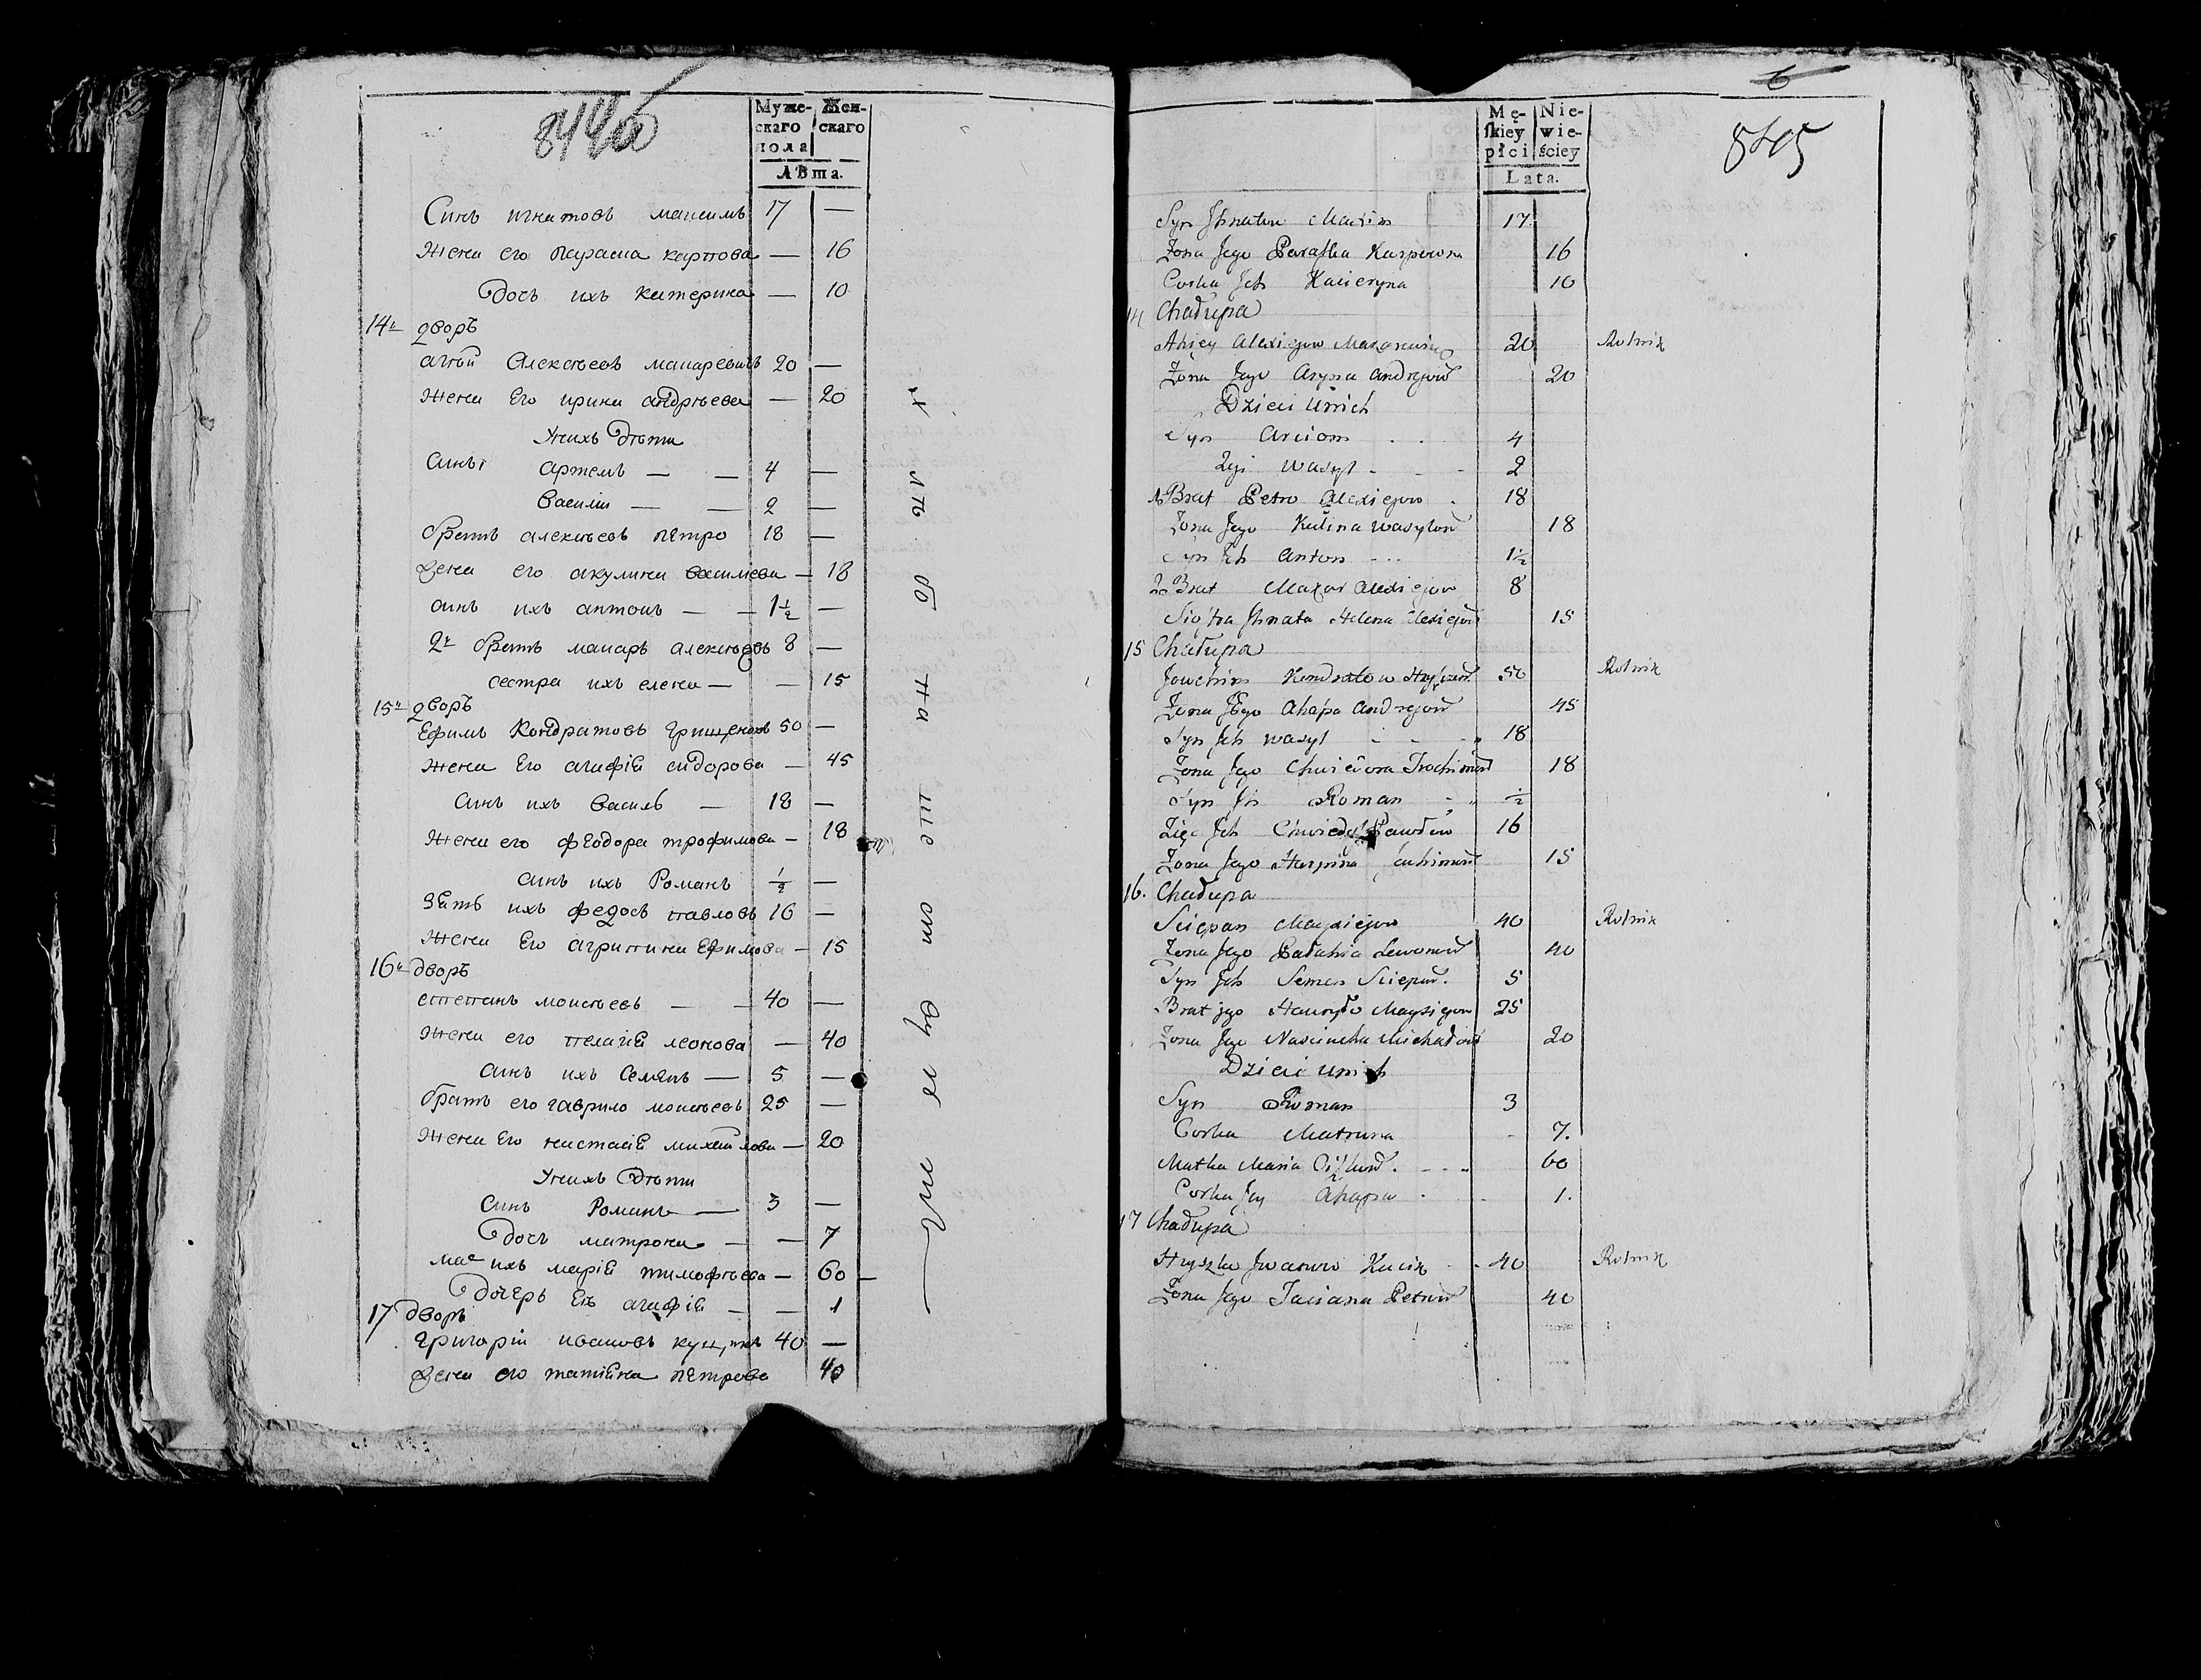 844об
Муже-
скаго
пола
Жен-
скаго
Лѣта.
Синъ игнатовъ максимъ 17 —
Жена его параска карпова — 16
Дочь ихъ катерина — 10
14й дворъ
агѣй Алексѣевъ макаревичъ 20 —
Жена Его ирина андрѣева — 20
Унихъ Дѣти
Синъ артемъ — — 4 —
василій — — 2 —
братъ алексѣевъ пѣтро 18 —
жена его акулина василіева — 18
синъ ихъ антонъ — — 1½ —
2й братъ макаръ алексѣевъ 8 —
сестра ихъ елена — — 15
15й дворъ
Ефимъ Кондратовъ 50 —
Жена Его агафіѣ сидорова — 45
Синъ ихъ василь — 18 —
Жена его феодора трофимова — 18
Синъ ихъ Романъ ½ —
Зять ихъ федосъ павловъ 16 —
Жена Его агрипина Ефимова — 15
16й дворъ
степанъ моисѣевъ — — 40 —
Жена его пелагіѣ леонова — 40
Синъ ихъ Семѣнъ — 5 —
братъ его гаврило моисѣевъ 25 —
Жена Его настасіѣ михайлова — 20
Унихъ Дѣти
Синъ Романъ — 3 —
Дочь матрона — — 7
ма ихъ маріѣ тимофѣева — 60 —
Дочерь Еѣ агафіѣ — — 1
17 дворъ
григорій ивановъ 40 —
жена его татіѣна пѣтрова 40
6
845
Mę-
skiey
płci
Nie-
wie-
ściey
Lata.
Syn Jhnatow Maxim 17.
Żona Jego Paraska Karpowna 16
Corka Jch Kacieryna 10
14 Chałupa
Ahiey Alexiejow Makarewicz 20 Rolnik
Żona Jego Aryna Andrejow 20
Dzieci Unich
Syn Arciom . . 4
2gi Wasyl - - 2
1 Brat Petro Alexiejow . 18
Żona Jego Kulina Wasylow 18
Syn Jch Anton - .. 1½
2 Brat Makar Alexiejow 8
Siostra Jhnata Helena Alexiejow 15
15 Chałupa
Jowchim Kondratow 50 Rolnik
Żona Jego Ahapa Andrejow 45
Syn Jch Wasyl - - - 18
Żona Jego Chwiedora Trochimow 18
Syn Jch Roman - ½
Zięć Jch Pawłow 16
Żona Jego Harpina Jauchimow 15
16. Chałupa
Sciepan Maysiejow 40 Rolnik
Żona Jego Pałahia Lewonow 40
Syn Jch Semen Sciepow. 5
Brat jego Hawryło Maysiejow 25
Żona Jego Nasciucha Michałow 20
Dzieci Unich
Syn Roman 3
Corka Matruna - 7.
Matka Maria . - - - 60
Corka Jey Ahapa . - 1.
17 Chałupa
Hryszka Jwanow Kucik - - 40 Rolnik
Żona Jego Taciana Petrow 40